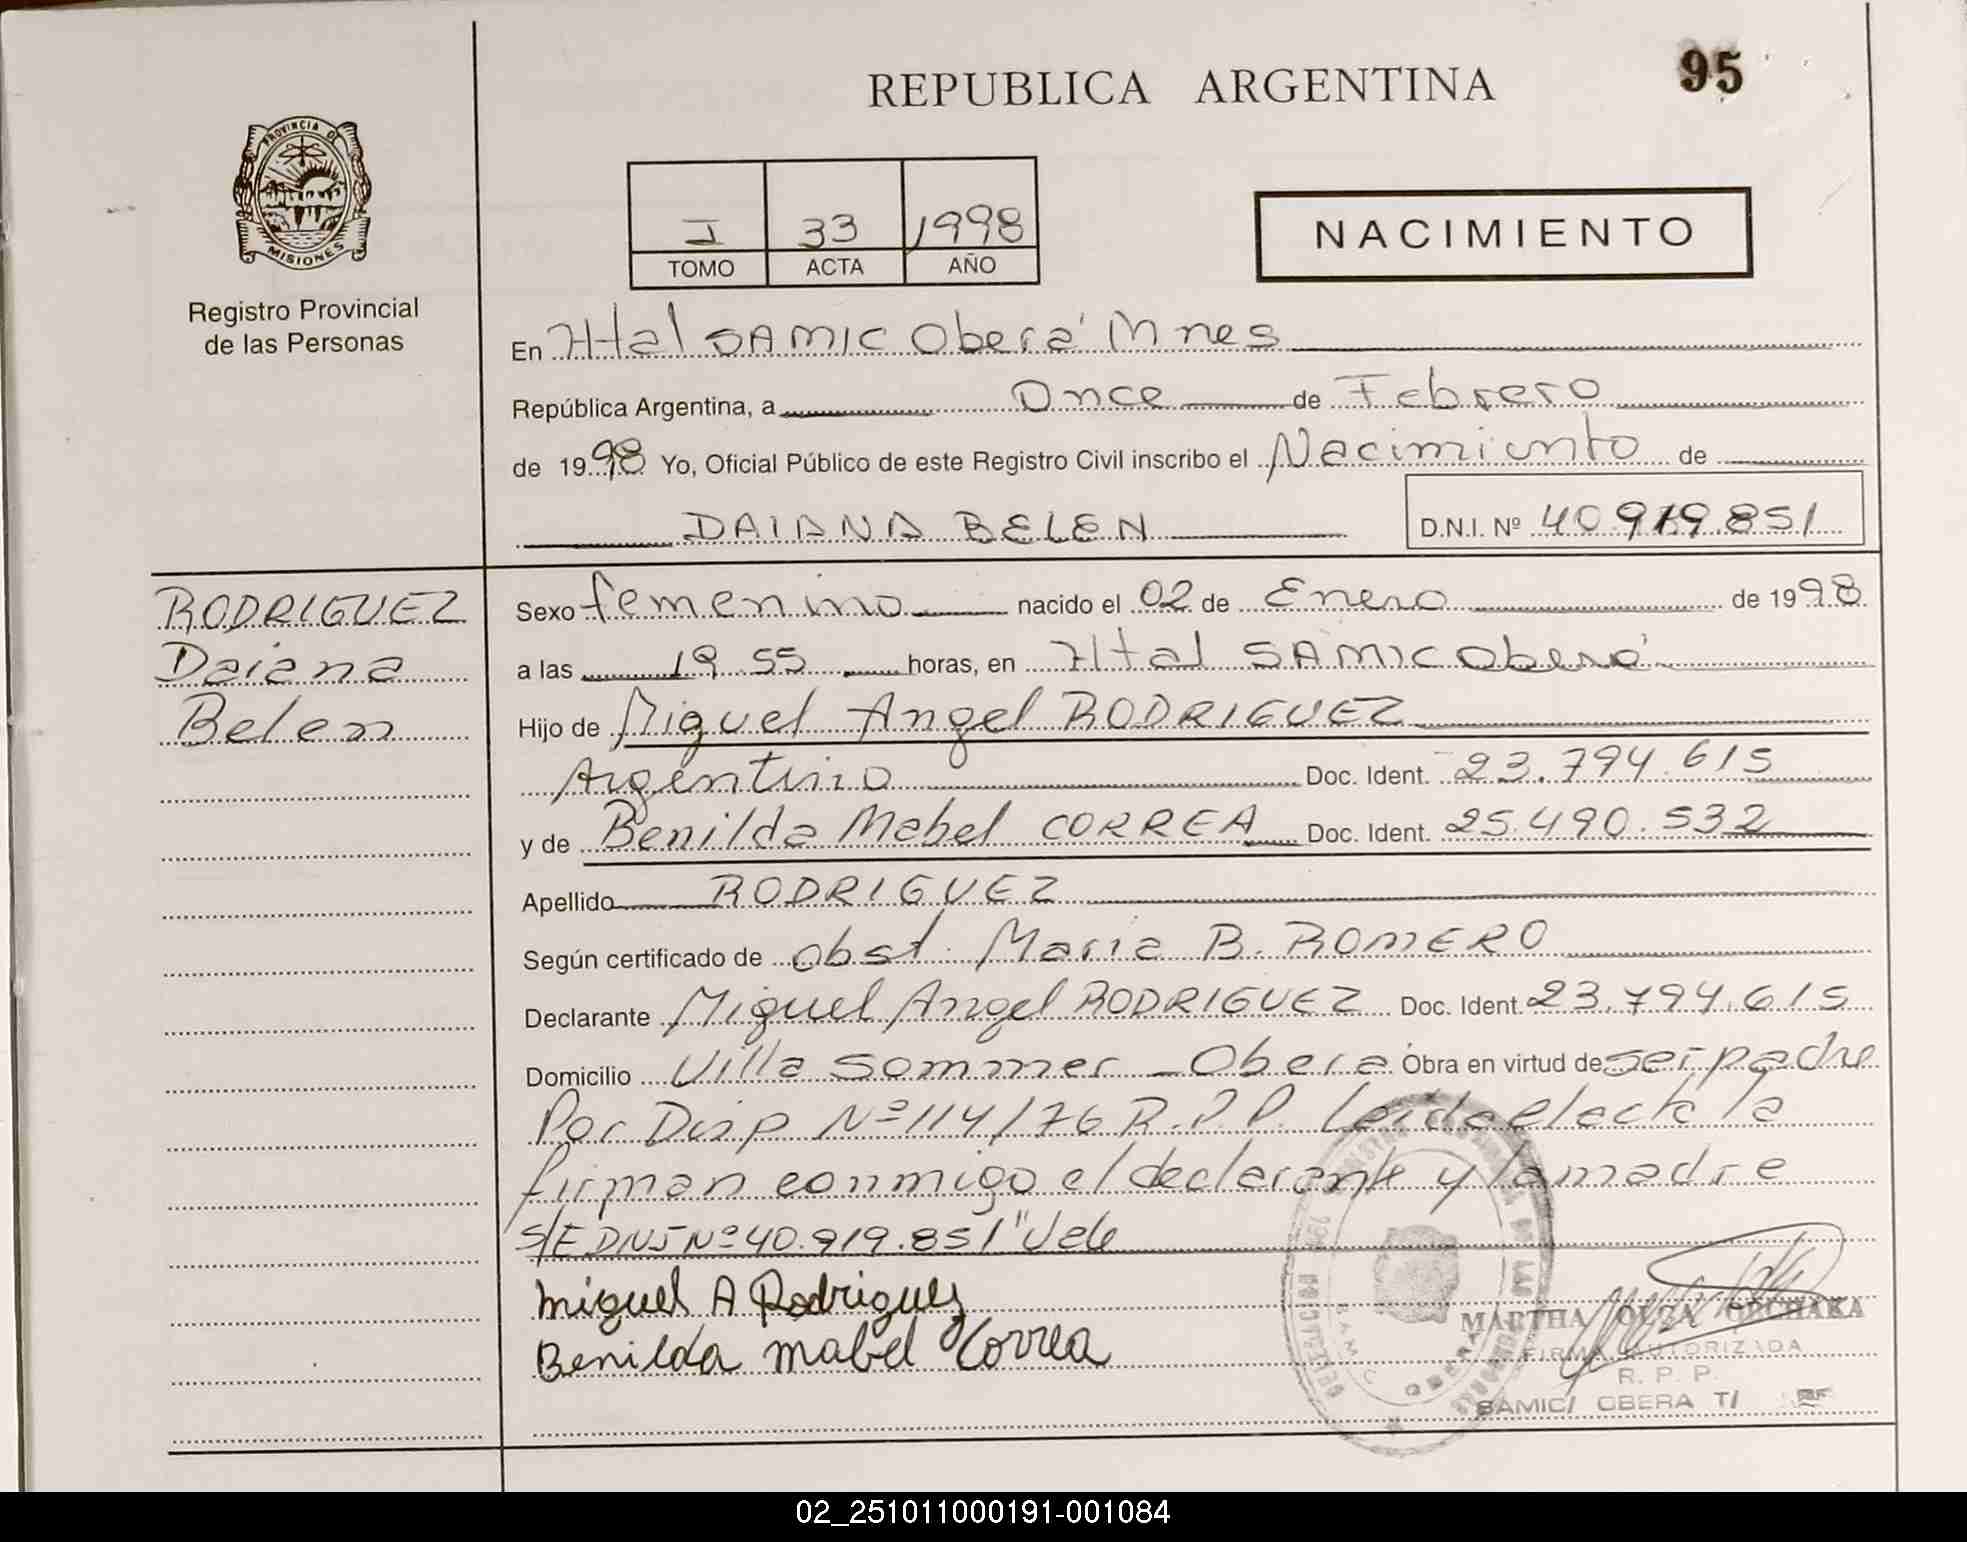 95
REPUBLICA ARGENTINA
PROVINCIA DE
MISIONES
Registro Provincial
de las Personas
I 33 1998
TOMO ACTA AÑO
NACIMIENTO
En Htal SAMIC Oberá Mnes
República Argentina, a Once de Febrero
de 1998 Yo, Oficial Público de este Registro Civil inscribo el Nacimiento de
DAIANA BELEN D.N.I. Nº 40.919.851
RODRIGUEZ
Daiana
Belen
Sexo femenino nacido el 02 de Enero de 1998
a las 19.55 horas, en Htal SAMIC Oberá
Hijo de Miguel Angel RODRIGUEZ
Argentino Doc. Ident. 23.794.615
y de Benilda Mabel CORREA Doc. Ident. 25.490.532
Apellido RODRIGUEZ
Según certificado de Obst. Maria B. ROMERO
Declarante Miguel Angel RODRIGUEZ Doc. Ident. 23.794.615
Domicilio Villa Sommer - Oberá Obra en virtud de ser padre
Por Disp Nº 114/76 R.P.P. Leida el acta la
firman conmigo el declarante y la madre
S/E DNI Nº 40.919.851 "Vale
Miguel A Rodriguez
Benilda mabel Correa
MARTHA OLGA
FIRMA AUTORIZADA
R. P. P.
SAMIC/ OBERA T/
02_251011000191-001084